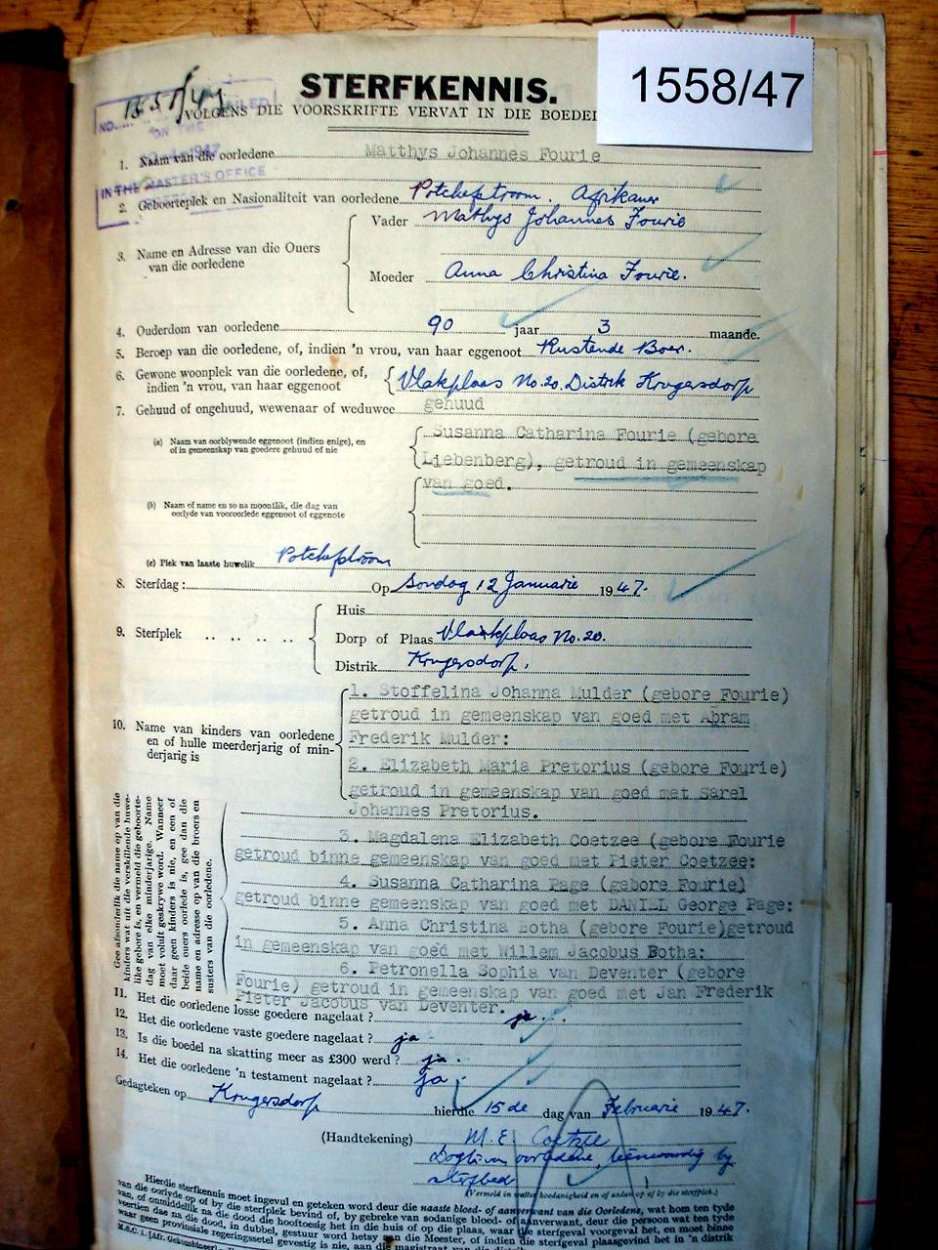 1558/47
STERFKENNIS.
VOLGENS DIE VOORSKRIFTE VERVAT IN DIE BOEDEL
NO. 1558/47
ON THE
IN THE MASTER'S OFFICE
1. Naam van die oorledene Matthys Johannes Fourie
2. Geboorteplek en Nasionaliteit van oorledene Potchefstroom. Afrikaner
3. Name en Adresse van die Ouers van die oorledene
Vader Mathys Johannes Fourie
Moeder Anna Christina Fourie.
4. Ouderdom van oorledene 90 jaar 3 maande.
5. Beroep van die oorledene, of, indien 'n vrou, van haar eggenoot Rustende Boer.
6. Gewone woonplek van die oorledene, of, indien 'n vrou, van haar eggenoot Vlakplaas No. 20. Distrik Krugersdorp
7. Gehuud of ongehuud, wewenaar of weduwee gehuud
(a) Naam van oorblywende eggenoot (indien enige), en of in gemeenskap van goedere gehuud of nie
Susanna Catharina Fourie (gebore
Liebenberg), getroud in gemeenskap
van goed.
(b) Naam of name en so na moontlik, die dag van oorlyde van vooroorlede eggenoot of eggenote
(c) Plek van laaste huwelik Potchefstroom
8. Sterfdag: Op Sondag 12 Januarie 1947.
9. Sterfplek
Huis
Dorp of Plaas Vlakplaas No. 20.
Distrik Krugersdorp.
10. Name van kinders van oorledene en of hulle meerderjarig of minderjarig is
1. Stoffelina Johanna Mulder (gebore Fourie)
getroud in gemeenskap van goed met Abram
Frederik Mulder:
2. Elizabeth Maria Pretorius (gebore Fourie)
getroud in gemeenskap van goed met Sarel
Johannes Pretorius.
3. Magdalena Elizabeth Coetzee (gebore Fourie
getroud binne gemeenskap van goed met Pieter Coetzee:
4. Susanna Catharina Page (gebore Fourie)
getroud binne gemeenskap van goed met DANIEL George Page:
5. Anna Christina Botha (gebore Fourie)getroud
in gemeenskap van goed met Willem Jacobus Botha:
6. Petronella Sophia van Deventer (gebore
Fourie) getroud in gemeenskap van goed met Jan Frederik
Pieter Jacobus van Deventer.
Gee afsonderlik die name op van die
kinders wat uit die verskillende huwe-
like gebore is, en vermeld die geboorte-
dag van elke minderjarige. Name
moet voluit geskrywe word. Wanneer
daar geen kinders is nie, en een of
beide ouers oorlede is, gee dan die
name en adresse op van die broers en
susters van die oorledene.
11. Het die oorledene losse goedere nagelaat? ja.
12. Het die oorledene vaste goedere nagelaat? ja
13. Is die boedel na skatting meer as £300 werd? ja.
14. Het die oorledene 'n testament nagelaat? ja
Gedagteken op Krugersdorp hierdie 15de dag van Februarie 1947.
(Handtekening) M. E. Coetzee
Dogter van oorledene, teenwoordig by
sterfbed
(Vermeld in watter hoedanigheid en of aldan op of by die sterfplek.)
Hierdie sterfkennis moet ingevul en geteken word deur die naaste bloed- of aanverwant van die Oorledene, wat hom ten tyde
van die oorlyde op of by die sterfplek bevind of, by gebreke van sodanige bloed- of aanverwant, deur die persoon wat ten tyde
van, of onmiddellik na die dood die hooftoesig het in die huis of op die plaas, waar die sterfgeval voorgeval het, en moet binne
veertien dae na die dood, in dubbel, gestuur word hetsy aan die Meester, of indien die sterfgeval plaasgevind het in 'n distrik
waar geen provinsiale regeringssetel gevestig is nie, aan die magistraat van